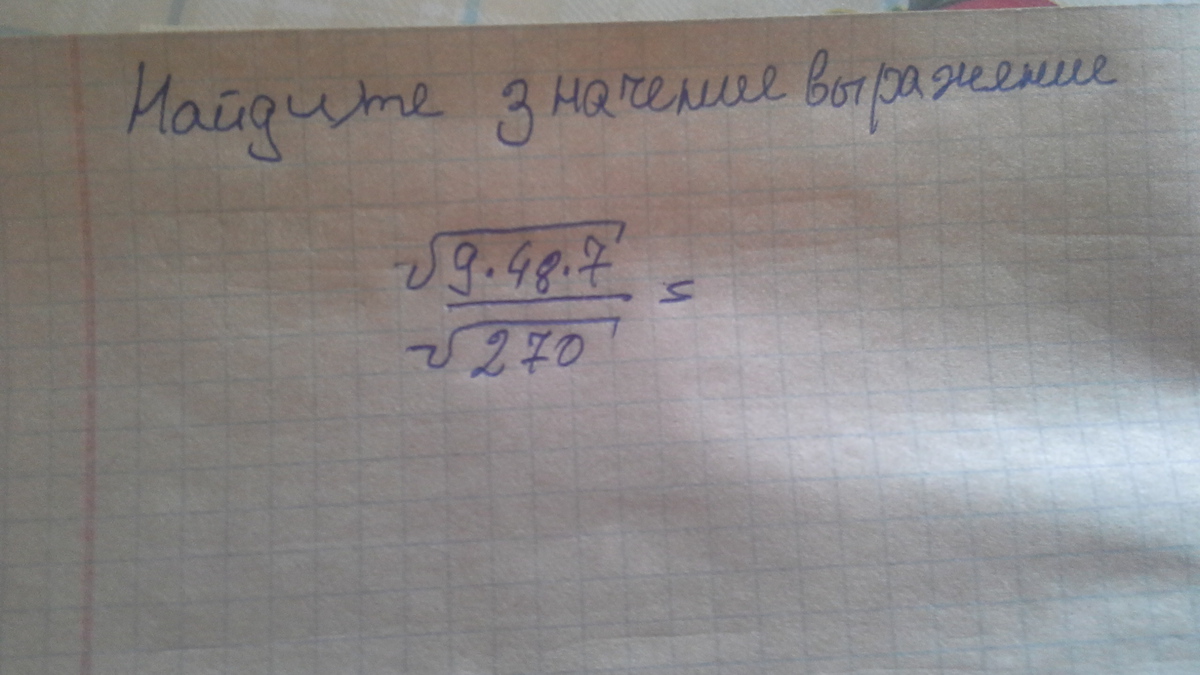 Найдите значение выражение
√9·48·7
√270 =